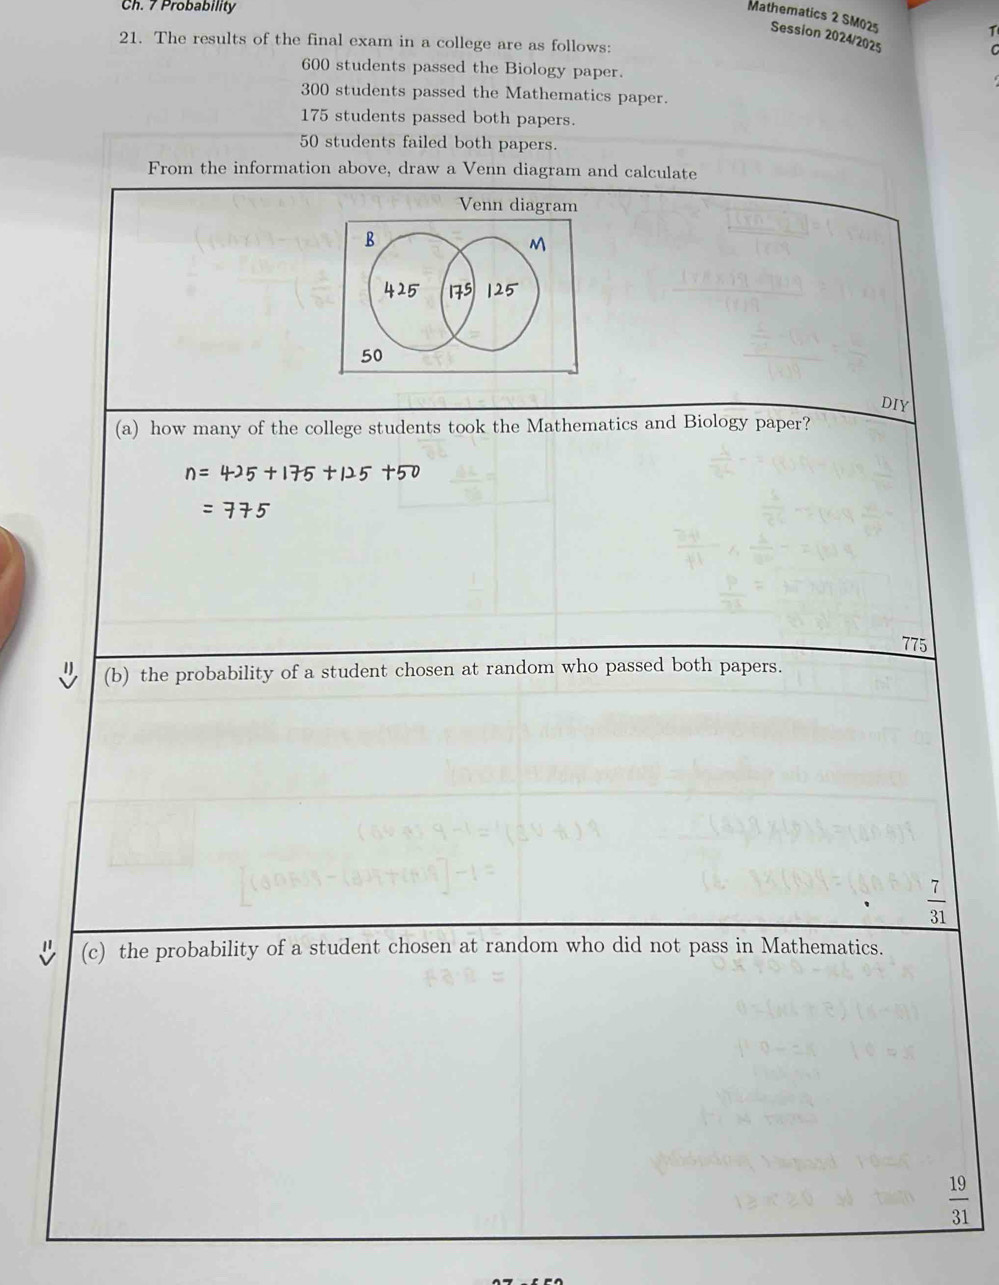 Ch. 7 Probability
Mathematics 2 SM025
Session 2024/2025
21. The results of the final exam in a college are as follows:
600 students passed the Biology paper.
300 students passed the Mathematics paper.
175 students passed both papers.
50 students failed both papers.
From the information above, draw a Venn diagram and calculate
Venn diagram
B M
425 175 125
50
DIY
(a) how many of the college students took the Mathematics and Biology paper?
n = 425 + 175 + 125 + 50
= 775
775
(b) the probability of a student chosen at random who passed both papers.
7
31
(c) the probability of a student chosen at random who did not pass in Mathematics.
19
31